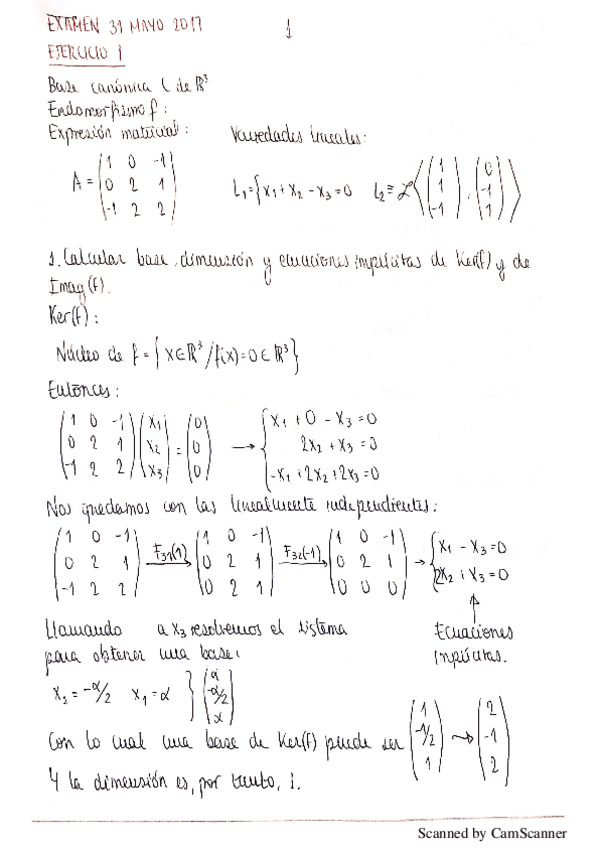 EXAMEN 31 MAYO 2017
1
EJERCICIO 1
Base canónica C de ℝ³
Endomorfismo f:
Expresión matricial: Variedades lineales:
A = (1 0 -1
0 2 1
-1 2 2)
L₁={x₁+x₂-x₃=0 L₂≡ℒ<(1 1 -1), (0 -1 1)>
1. Calcular base, dimensión y ecuaciones implícitas de Ker(f) y de
Imag(f).
Ker(f):
Núcleo de f = {x∈ℝ³/f(x)=0∈ℝ³}
Entonces:
(1 0 -1
0 2 1
-1 2 2) (x₁ x₂ x₃) = (0 0 0) → {x₁+0-x₃=0
2x₂+x₃=0
-x₁+2x₂+2x₃=0
Nos quedamos con las linealmente independientes:
(1 0 -1
0 2 1
-1 2 2) F₃₁(1) → (1 0 -1
0 2 1
0 2 1) F₃₂(-1) → (1 0 -1
0 2 1
0 0 0) → {x₁-x₃=0
2x₂+x₃=0
Ecuaciones
implícitas.
Llamando α x₃ resolvemos el sistema
para obtener una base:
x₂=-α/2 x₁=α } (α -α/2 α)
Con lo cual una base de Ker(f) puede ser (1 -1/2 1) → (2 -1 2)
Y la dimensión es, por tanto, 1.
Scanned by CamScanner